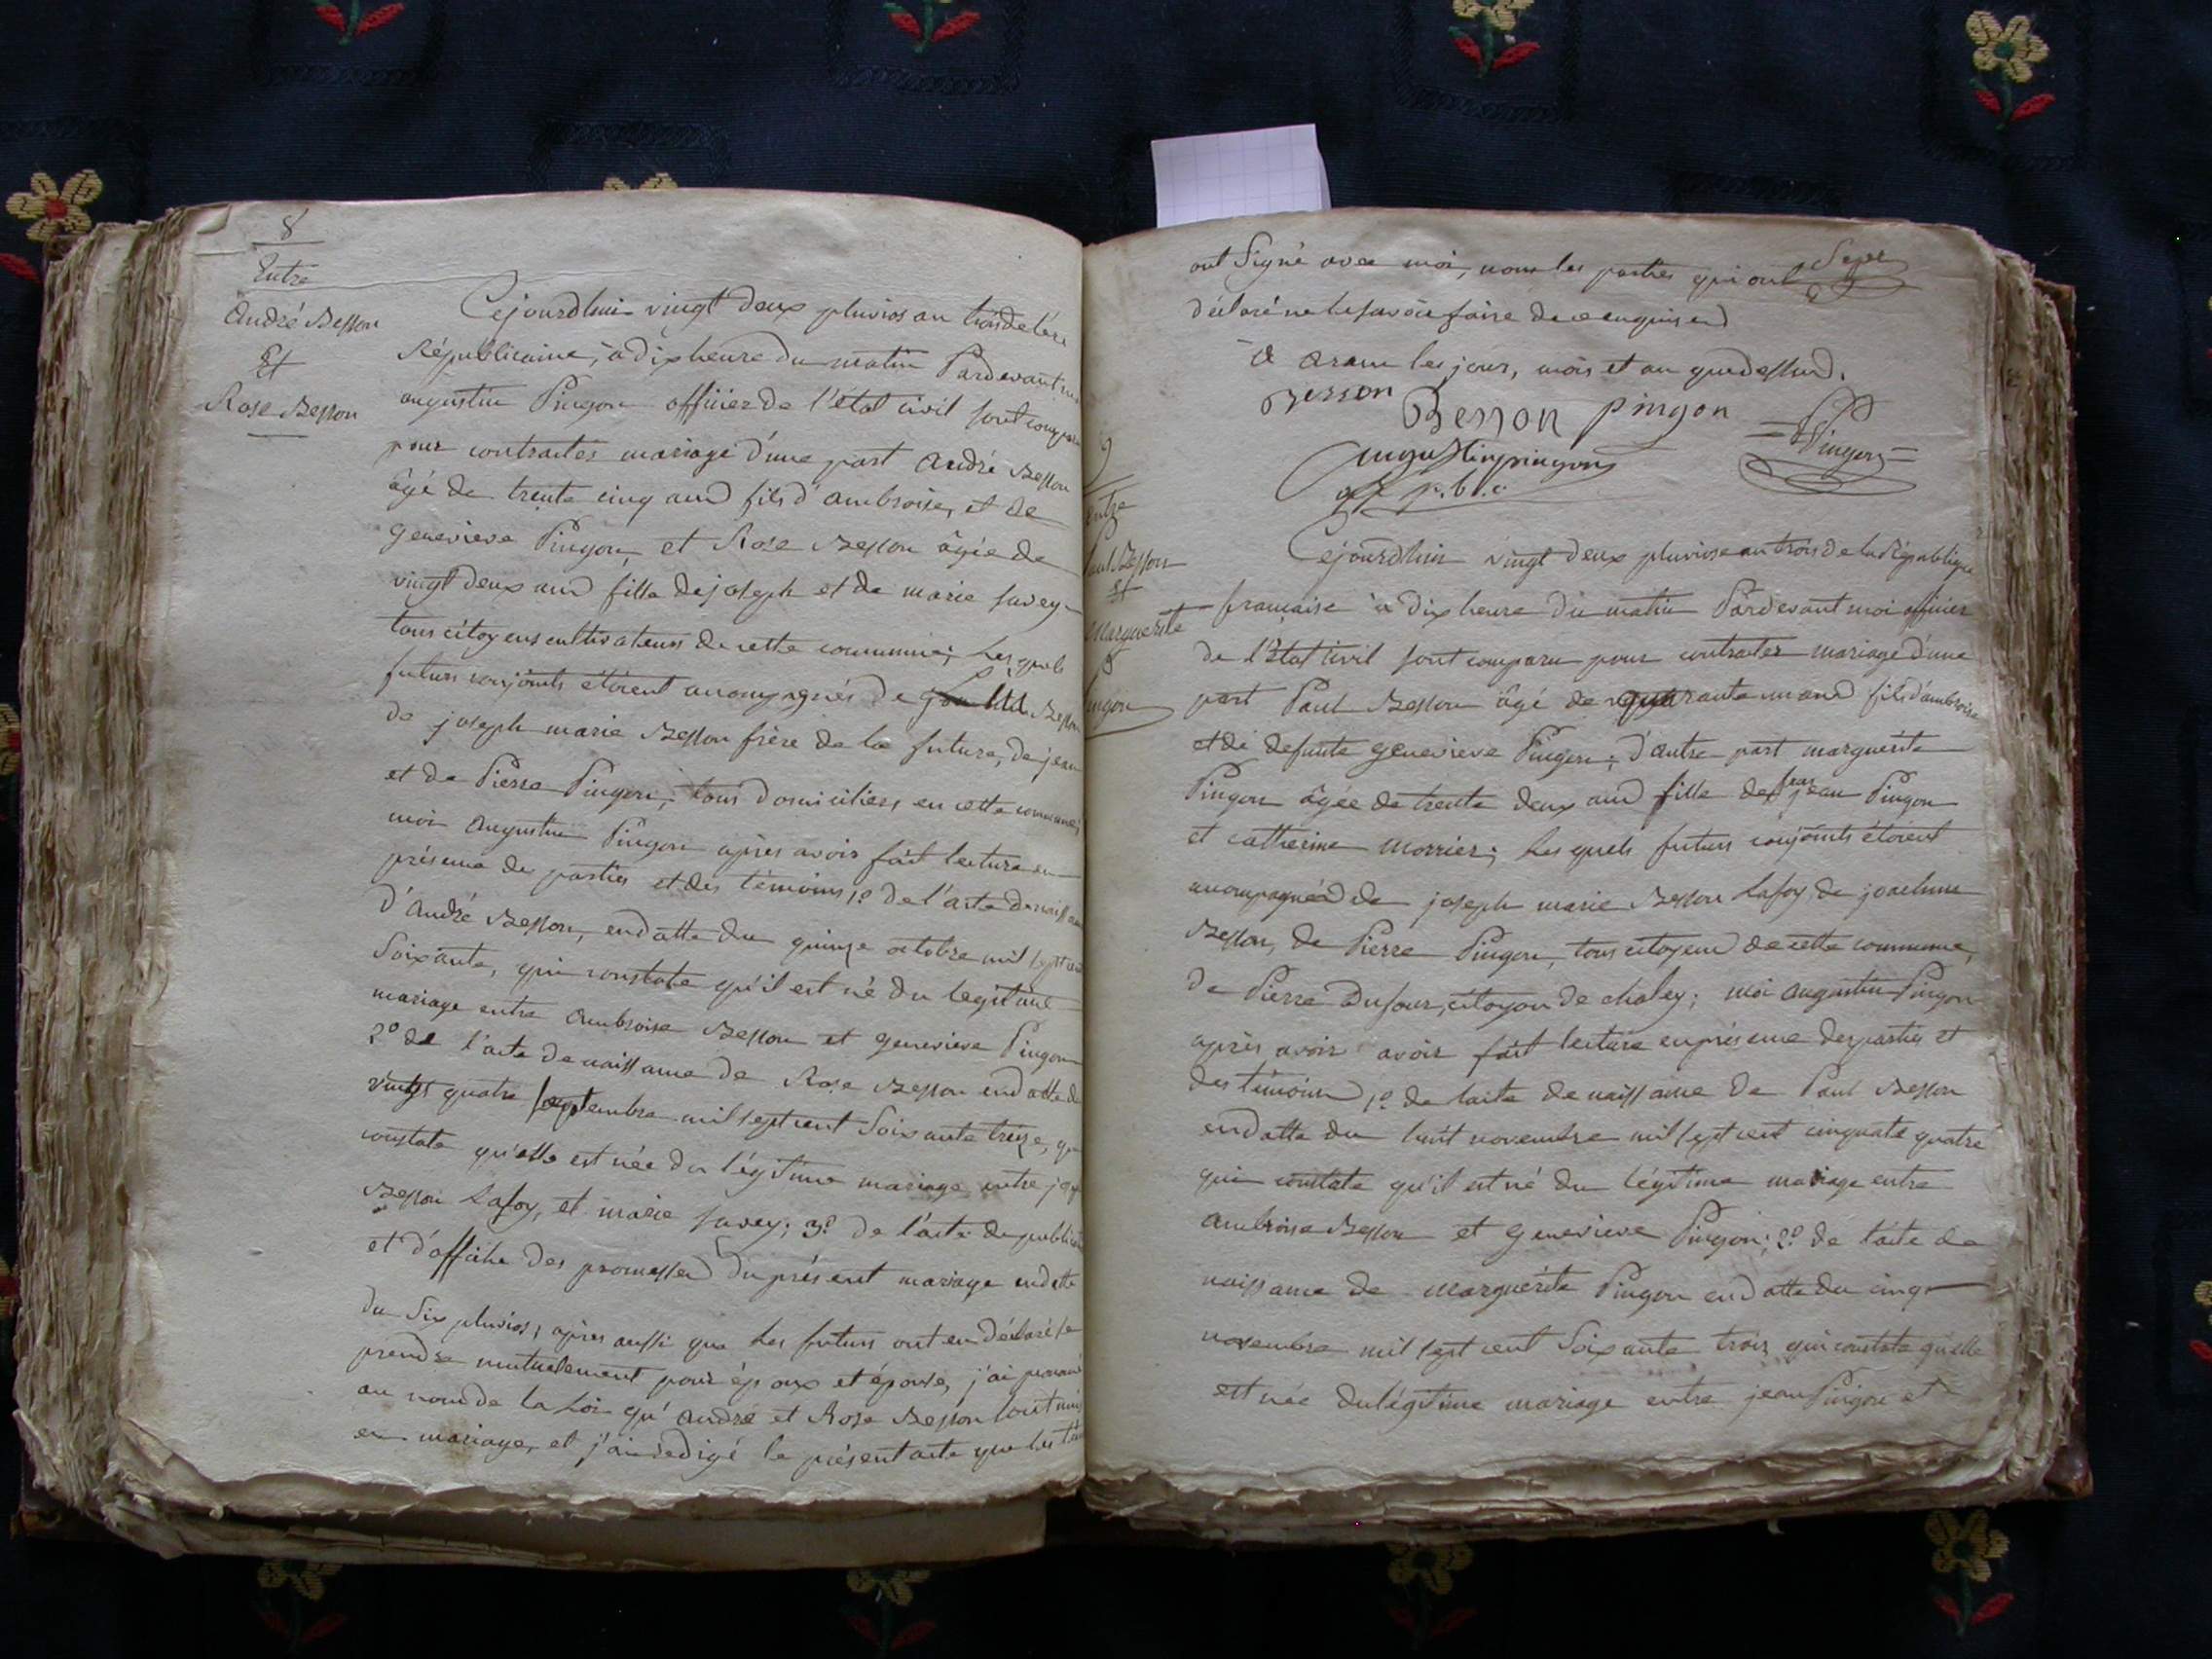 8
Entre
André Besson
Et
Rose Besson
Cejourdhui vingt deux pluvios an trois de l'ère
Républicaine, à dix heure du matin Pardevant moi
augustin Pingon officier de l'état civil sont comparu
pour contracter mariage d'une part André Besson
âgé de trente cinq ans fils d'ambroise, et de
genevieve Pingon, et Rose Besson âgée de
vingt deux ans fille de joseph et de marie juvey
tous citoyens cultivateurs de cette commune; Lesquels
futurs conjoints étoient accompagnés de Besson
de joseph marie Besson frère de la future, de jean
et de Pierre Pingon; tous domiciliers en cette commune,
moi Augustin Pingon après avoir fait lecture en
présence des parties et des témoins 1º de l'acte de naissance
d'André Besson, en datte du quinze octobre mil sept cent
Soixante, qui constate qu'il est né du legitime
mariage entre Ambroise Besson et genevieve Pingon
2º de l'acte de naissance de Rose Besson en datte du
vingt quatre septembre mil sept cent Soixante treize, qui
constate qu'elle est née du légitime mariage entre
Besson Lafoy, et marie juvey; 3º de l'acte de publication
et d'affiche des promesses du présent mariage en datte
du Six pluvios, après aussi que les futurs ont eu déclaré se
prendre mutuelement pour époux et épouse, j'ai prononcé
au nom de la Loi qu'André et Rose Besson sont unis
en mariage, et j'ai redigé le présent acte que les
ont Signé avec moi, non les parties qui ont
déclaré ne le savoir faire de ce enquis
à aranc les jour, mois et an que dessus.
Besson
Besson pingon
Pingon
augustin pingon
off p.b.c
9
entre
Paul Besson
et
Marguerite
Pingon
Cejourdhui vingt deux pluviose an trois de la République
française à dix heure du matin Pardevant moi officier
de l'Etat Civil sont comparu pour contracter mariage d'une
part Paul Besson âgé de quarante un ans fils d'ambroise
et de defunte genevieve Pingon; d'autre part marguerite
Pingon âgée de trente deux ans fille de feu jean Pingon
et catherine morrier; Lesquels futurs conjoints étoient
accompagnés de joseph marie Besson Lafoy, de joachime
Besson, de Pierre Pingon, tous citoyens de cette commune,
de Pierre Dufour, citoyen de chaley; moi augustin Pingon
après avoir avoir fait lecture en présence des parties et
des témoins 1º de l'acte de naissance de Paul Besson
en datte du huit novembre mil sept cent cinquante quatre
qui constate qu'il est né du légitime mariage entre
ambroise Besson et genevieve Pingon; 2º de l'acte de
naissance de Marguerite Pingon en datte du cinq
novembre mil sept cent Soixante trois qui constate qu'elle
est née du légitime mariage entre jean Pingon et